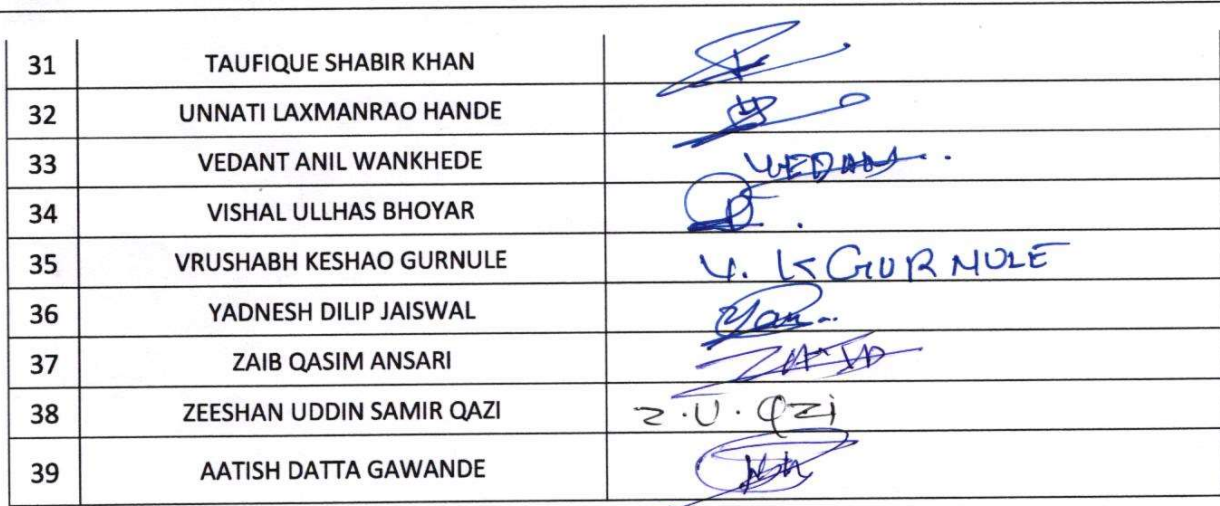 31 TAUFIQUE SHABIR KHAN
32 UNNATI LAXMANRAO HANDE
33 VEDANT ANIL WANKHEDE VEDANT
34 VISHAL ULLHAS BHOYAR
35 VRUSHABH KESHAO GURNULE V. K GURNULE
36 YADNESH DILIP JAISWAL
37 ZAIB QASIM ANSARI ZAIB
38 ZEESHAN UDDIN SAMIR QAZI Z.U.QZi
39 AATISH DATTA GAWANDE